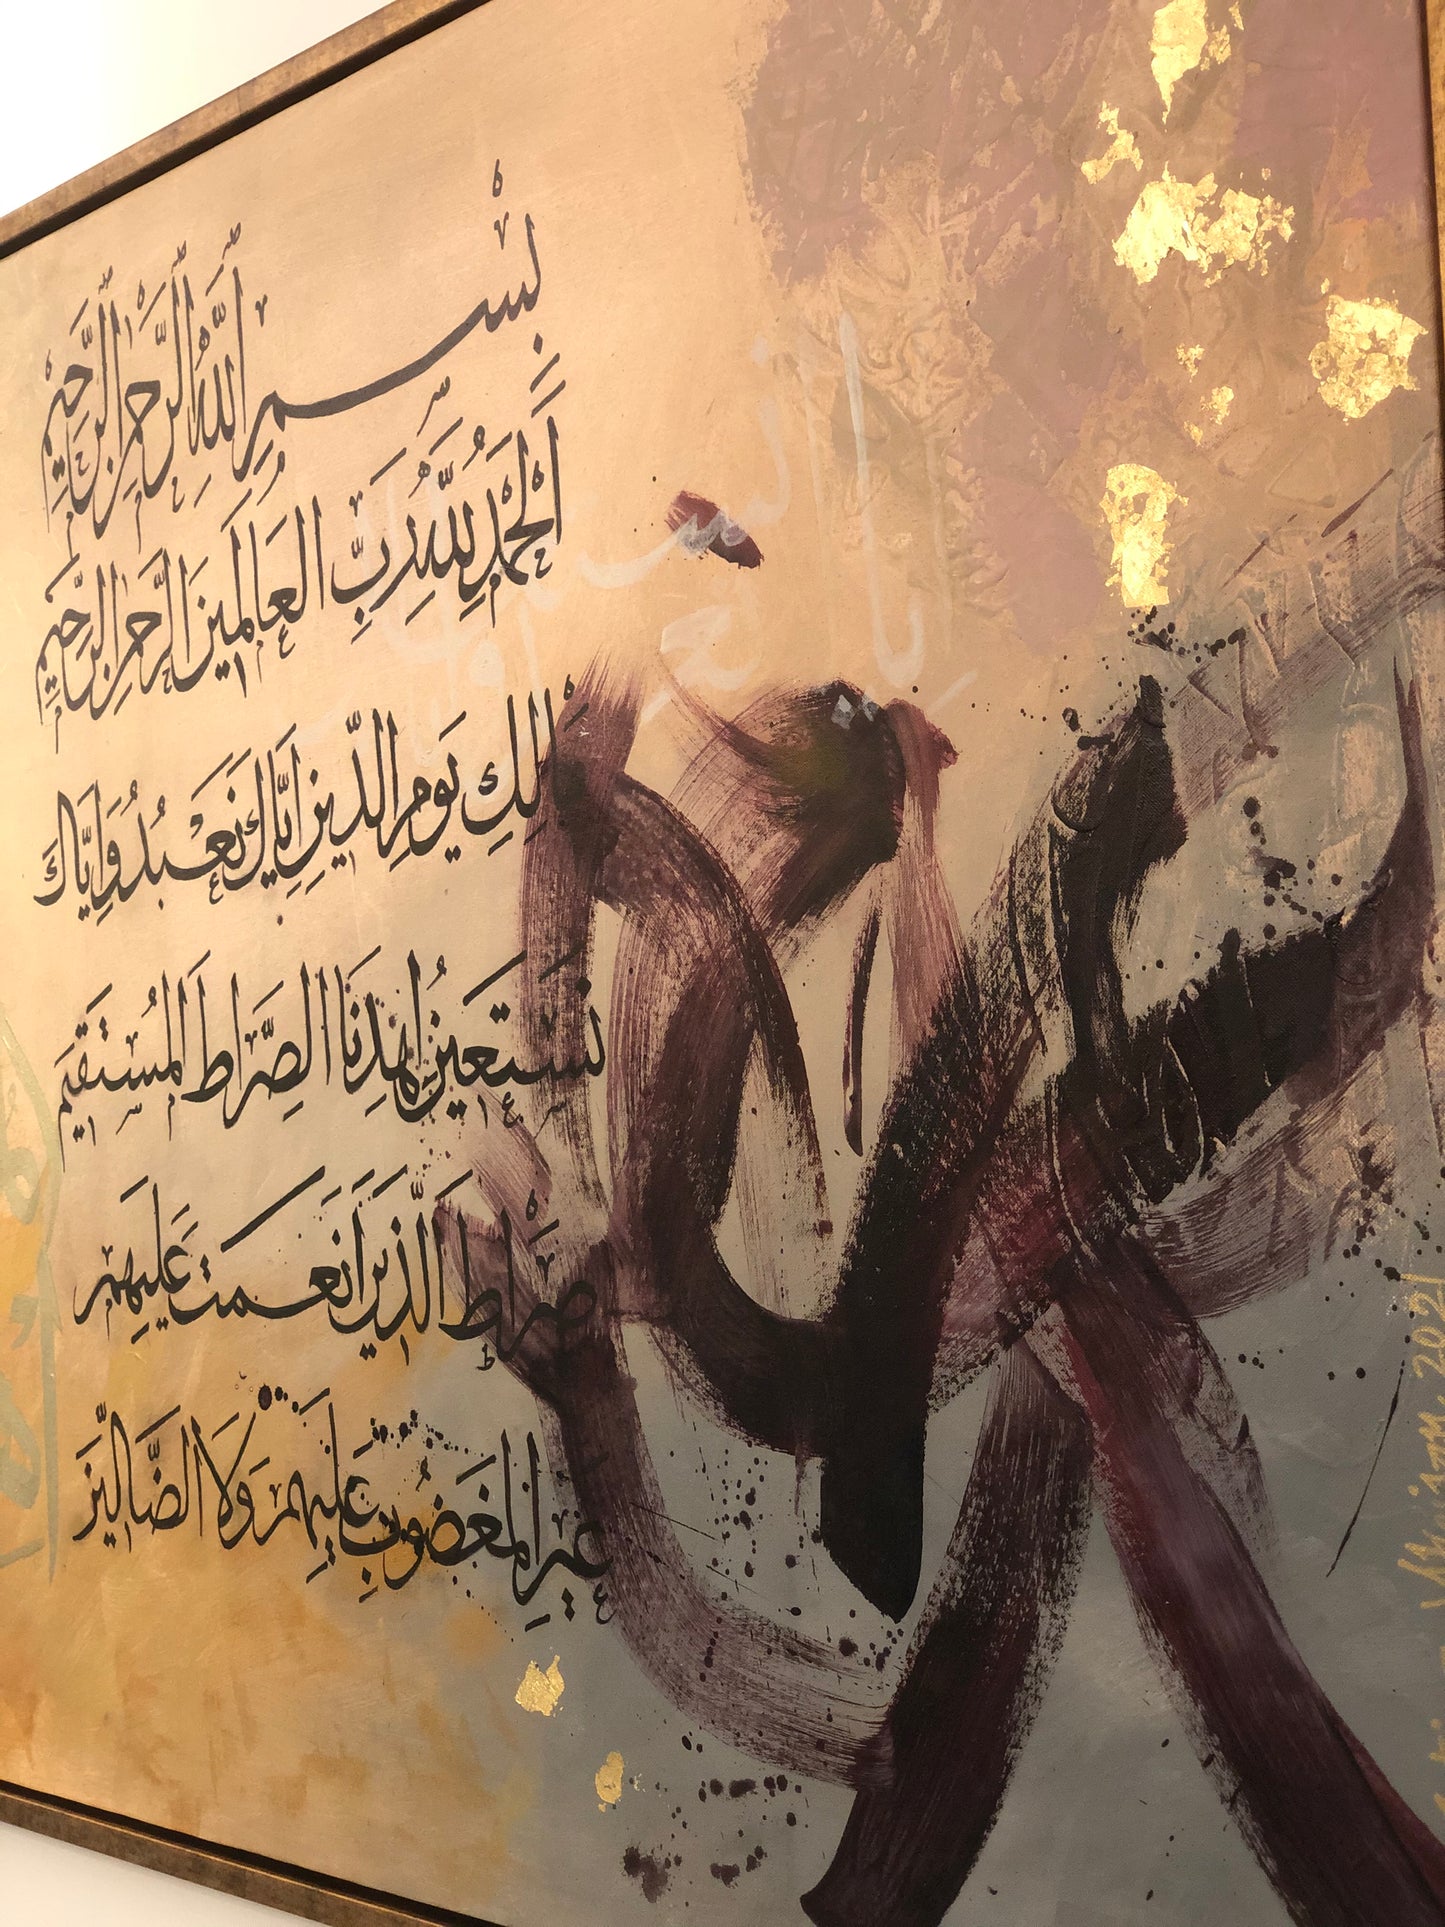 بِسْمِ اللَّهِ الرَّحْمَٰنِ الرَّحِيمِ
الْحَمْدُ لِلَّهِ رَبِّ الْعَالَمِينَ الرَّحْمَٰنِ الرَّحِيمِ
مَالِكِ يَوْمِ الدِّينِ إِيَّاكَ نَعْبُدُ وَإِيَّاكَ
نَسْتَعِينُ اهْدِنَا الصِّرَاطَ الْمُسْتَقِيمَ
صِرَاطَ الَّذِينَ أَنْعَمْتَ عَلَيْهِمْ
غَيْرِ الْمَغْضُوبِ عَلَيْهِمْ وَلَا الضَّالِّينَ
2021